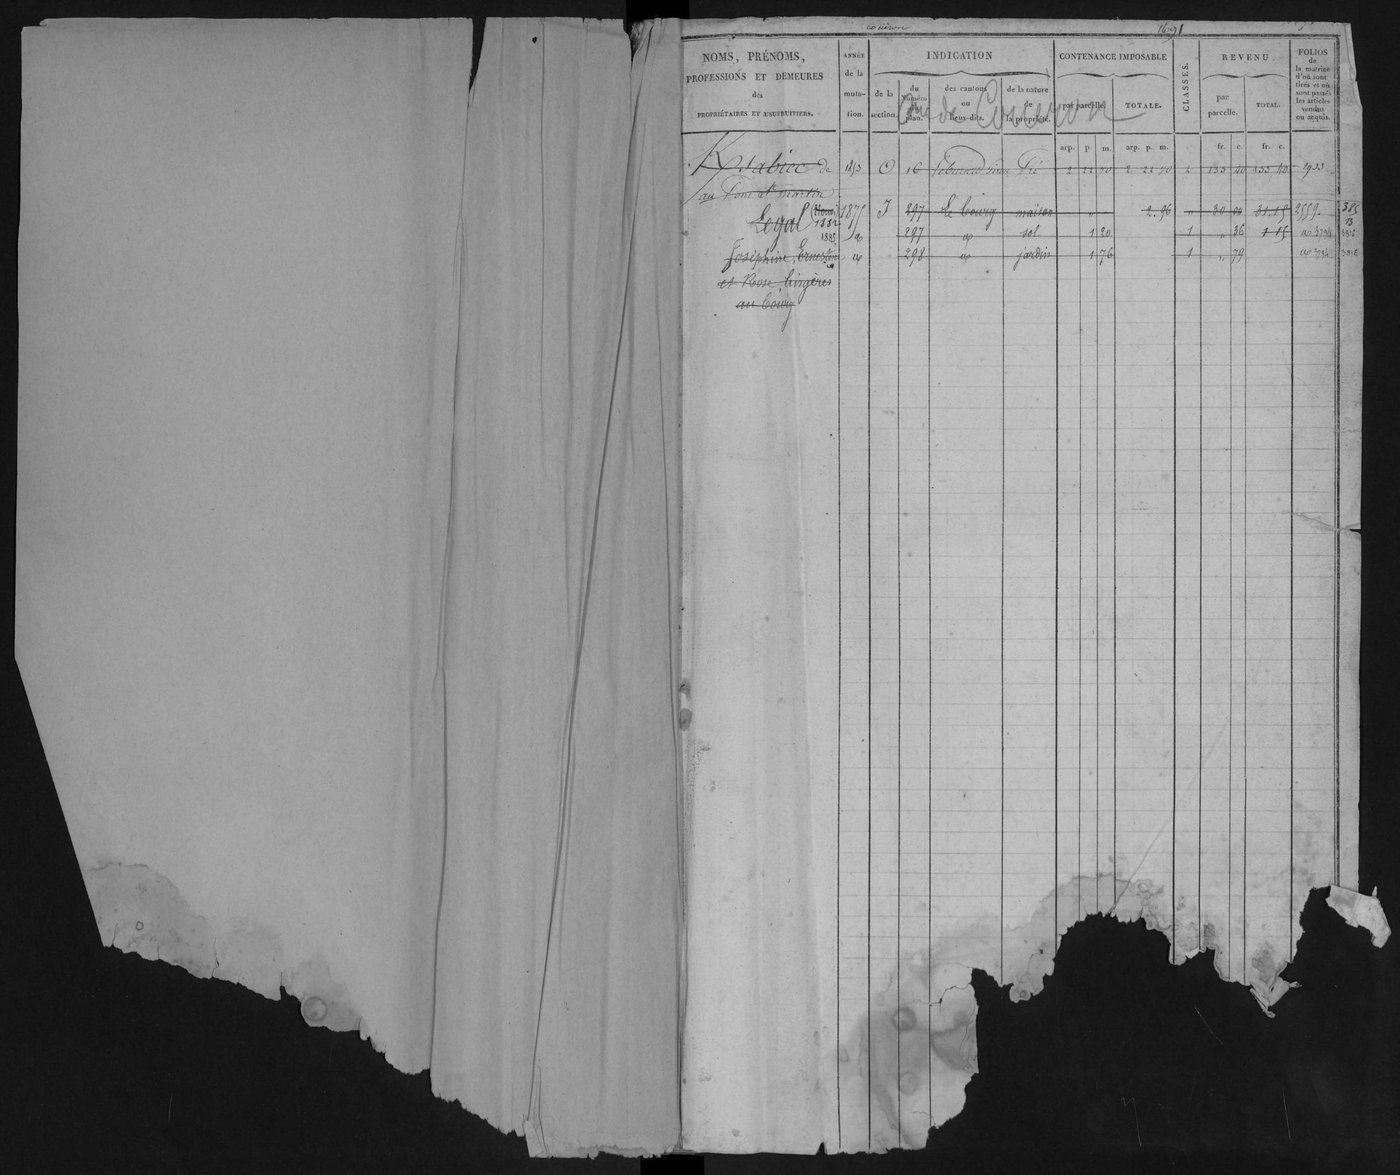 1691
NOMS, PRÉNOMS,
PROFESSIONS ET DEMEURES
des
PROPRIÉTAIRES ET USUFRUITIERS.
ANNÉE
de la
muta-
tion.
INDICATION
de la
section.
du
Numéro
du
plan.
des cantons
ou
lieux-dits.
de la nature
de
la propriété.
CONTENANCE IMPOSABLE
par parcelle.
TOTALE.
CLASSES.
REVENU.
par
parcelle.
TOTAL.
FOLIOS
de
la matrice
d'où sont
tirés et où
sont passés
les articles
vendus
ou acquis.
arp. p m. arp. p. m. fr. c. fr. c.
de 1853 O 16 Pré 2 22 70 2 22 70 2 133 40 133 40 1933
au Pont St martin
Legal 1875 J 297 Le bourg maison " " 2.96 " 30 00 31.15 2559. 385
1882
1885 297 sol 1 20 1 " 36 1 15
Joséphine, Ernestine 298 jardin 1 76 1 " 79
et Rose, lingères
au bourg